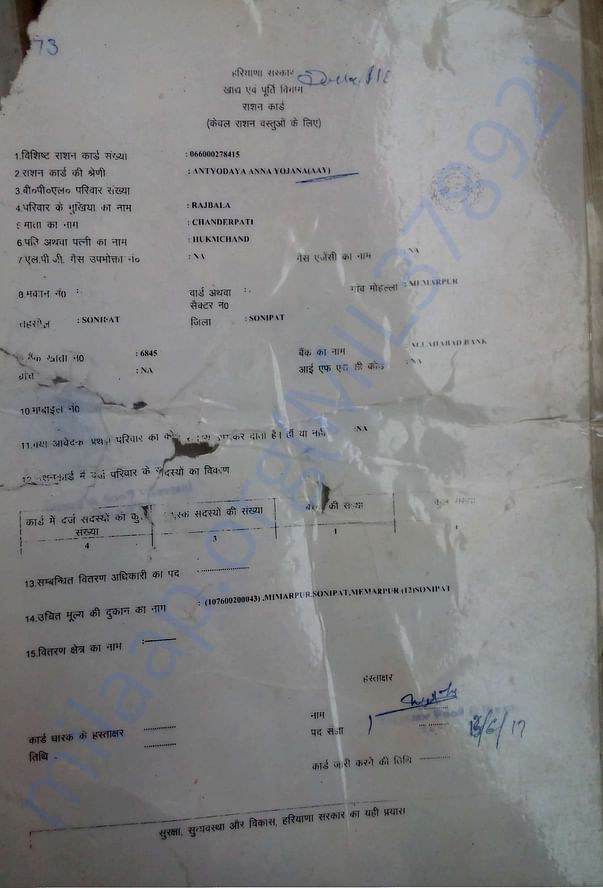 73
हरियाणा सरकार
खाद्य एवं पूर्ति विभाग
राशन कार्ड
(केवल राशन वस्तुओं के लिए)
1.विशिष्ट राशन कार्ड संख्या : 066000278415
2.राशन कार्ड की श्रेणी : ANTYODAYA ANNA YOJANA(AAY)
3.बी०पी०एल० परिवार संख्या
4.परिवार के मुखिया का नाम : RAJBALA
5 माता का नाम : CHANDERPATI
6.पति अथवा पत्नी का नाम : HUKMCHAND
7.एल.पी.जी. गैस उपभोक्ता नं० : NA गैस एजेंसी का नाम : NA
8.मकान न0 : वार्ड अथवा : गांव मोहल्ला : MEMARPUR
सैक्टर न0
तहसील : SONIPAT जिला : SONIPAT
खाता न0 : 6845 बैंक का नाम ALLAHABAD BANK
: NA आई एफ एस सी कोड : NA
10.मोबाईल न०
11.क्या आवेदक परिवार का दाता है। हाँ या नहीं :NA
में दर्ज परिवार के सदस्यों का विवरण
कार्ड में दर्ज सदस्यों की सदस्यों की संख्या की संख्या
संख्या
4 3 1
13.सम्बन्धित वितरण अधिकारी का पद
14.उचित मूल्य की दुकान का नाम : (107600200043) ,MIMARPUR,SONIPAT,MEMARPUR (12)SONIPAT
15.वितरण क्षेत्र का नाम :
हस्ताक्षर
नाम
पद संज्ञा 13/6/17
कार्ड धारक के हस्ताक्षर
तिथि
कार्ड जारी करने की तिथि
सुरक्षा, सुव्यवस्था और विकास, हरियाणा सरकार का यही प्रयास